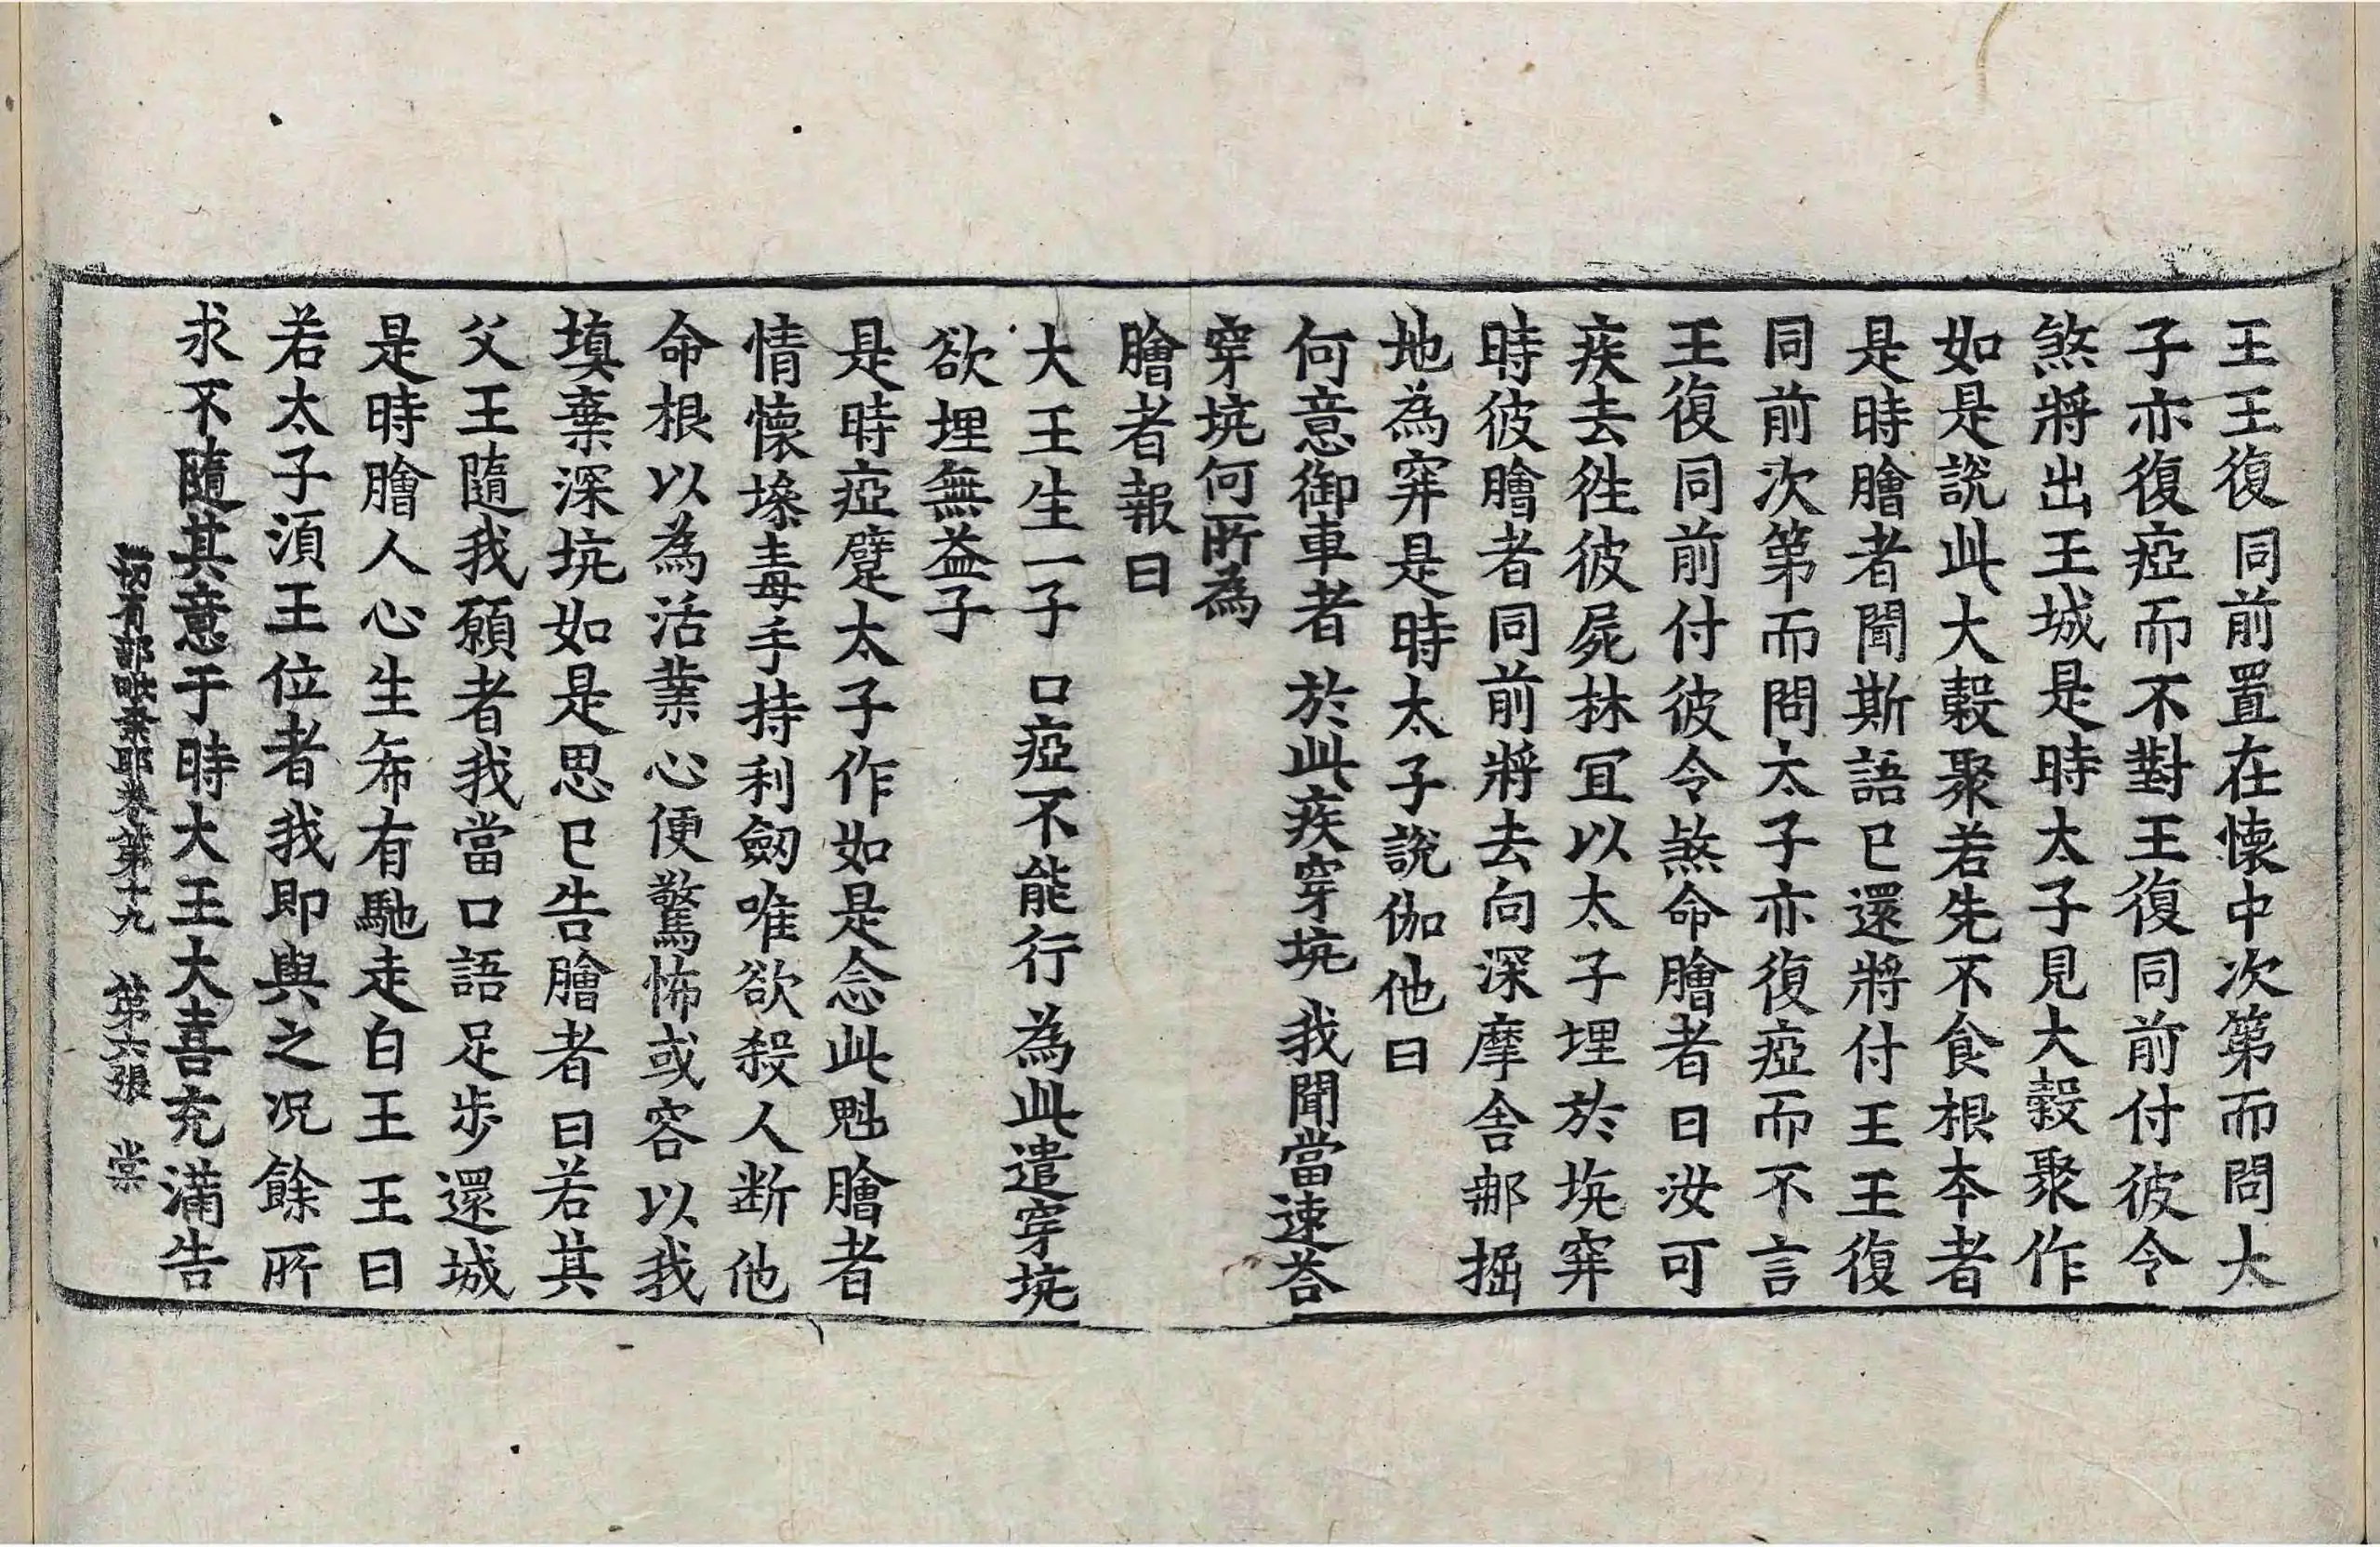 王王復同前置在懷中次第而問太
子亦復瘂而不對王復同前付彼令
煞將出王城是時太子見大穀聚作
如是說此大穀聚若先不食根本者
是時膾者聞斯語已還將付王王復
同前次第而問太子亦復瘂而不言
王復同前付彼令煞命膾者曰汝可
疾去徃彼屍林冝以太子埋於坑穽
時彼膾者同前將去向深摩舍郍掘
地為穽是時太子說伽他曰
何意御車者 於此疾穿坑 我聞當速荅
穿坑何所為
膾者報曰
大王生一子 口瘂不能行 為此遣穿坑
欲埋無益子
是時瘂躄太子作如是念此魁膾者
情懷墋毒手持利劒唯欲殺人断他
命根以為活業心便驚怖或容以我
填棄深坑如是思已告膾者曰若其
父王隨我願者我當口語足步還城
是時膾人心生希有馳走白王王曰
若太子須王位者我即與之况餘所
求不隨其意于時大王大喜充滿告
切有部毗奈耶卷第十九 第六張 棠